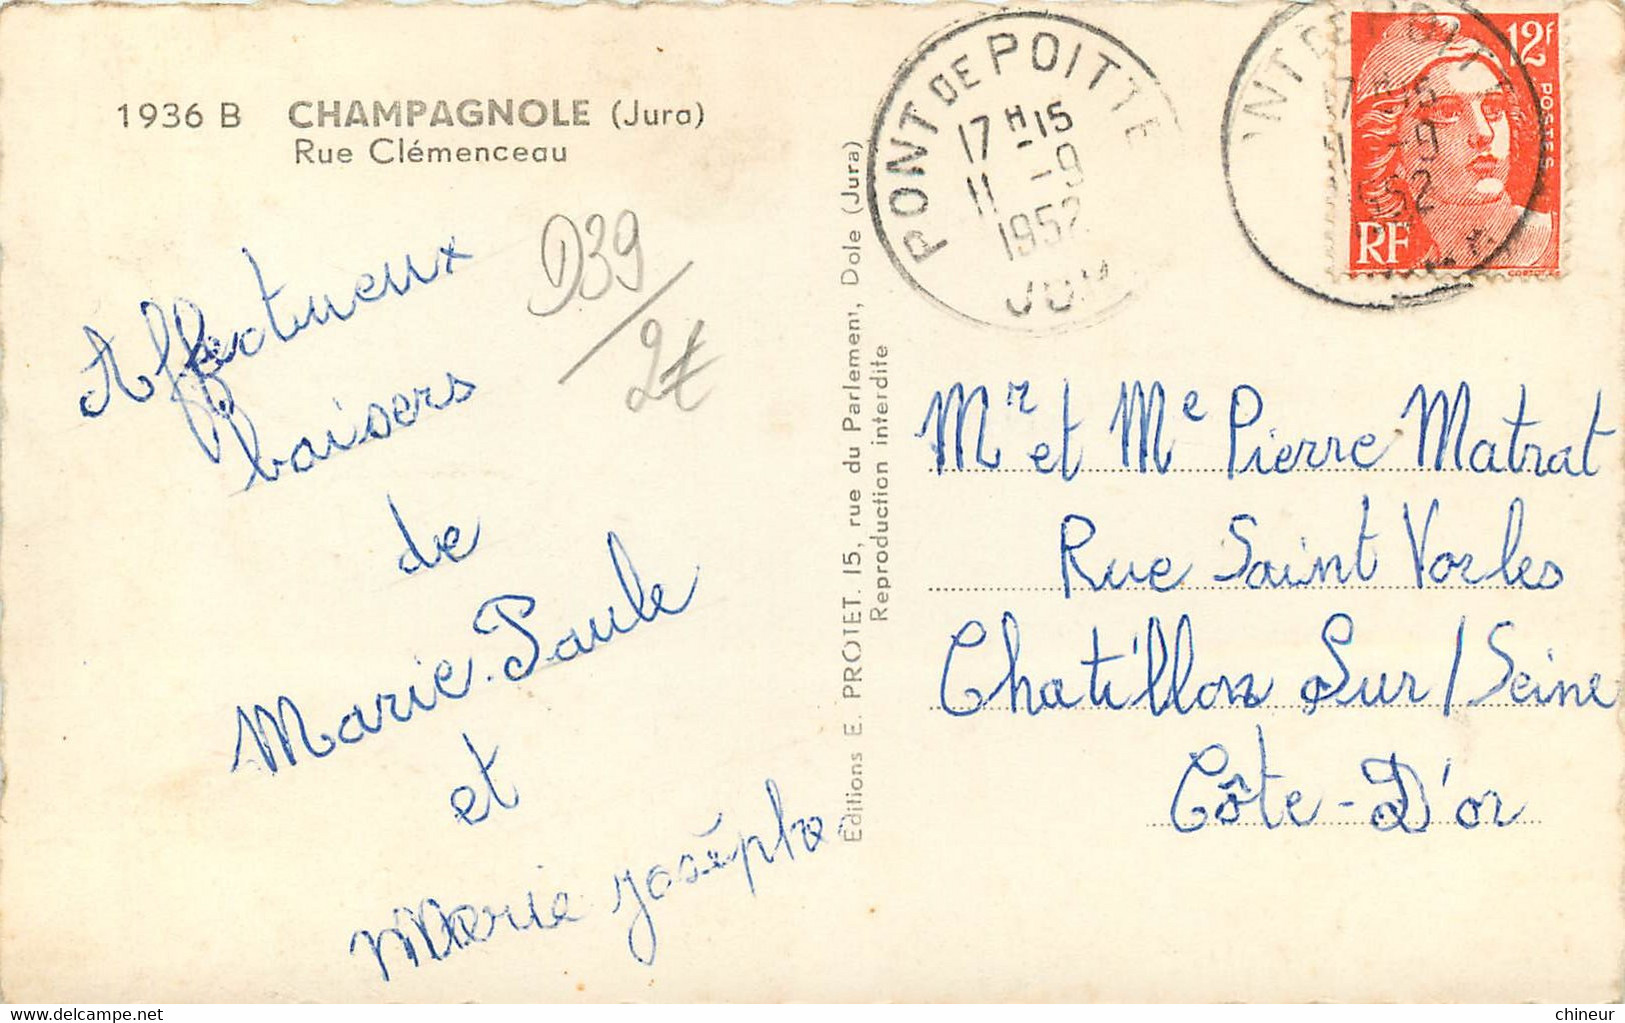 1936 B CHAMPAGNOLE (Jura)
Rue Clémenceau
D39
2€
Affectueux
baisers
de
Marie-Paule
et
Marie josépha
Editions E. PROTET. 15, rue du Parlement, Dole (Jura)
Reproduction interdite
PONT DE POITTE
17 H -15
11 -9
1952
JURA
12f
POSTES
RF
Mr et Me Pierre Matrat
Rue Saint Vorles
Chatillon Sur/Seine
Côte-D'or
www.delcampe.net
chineur